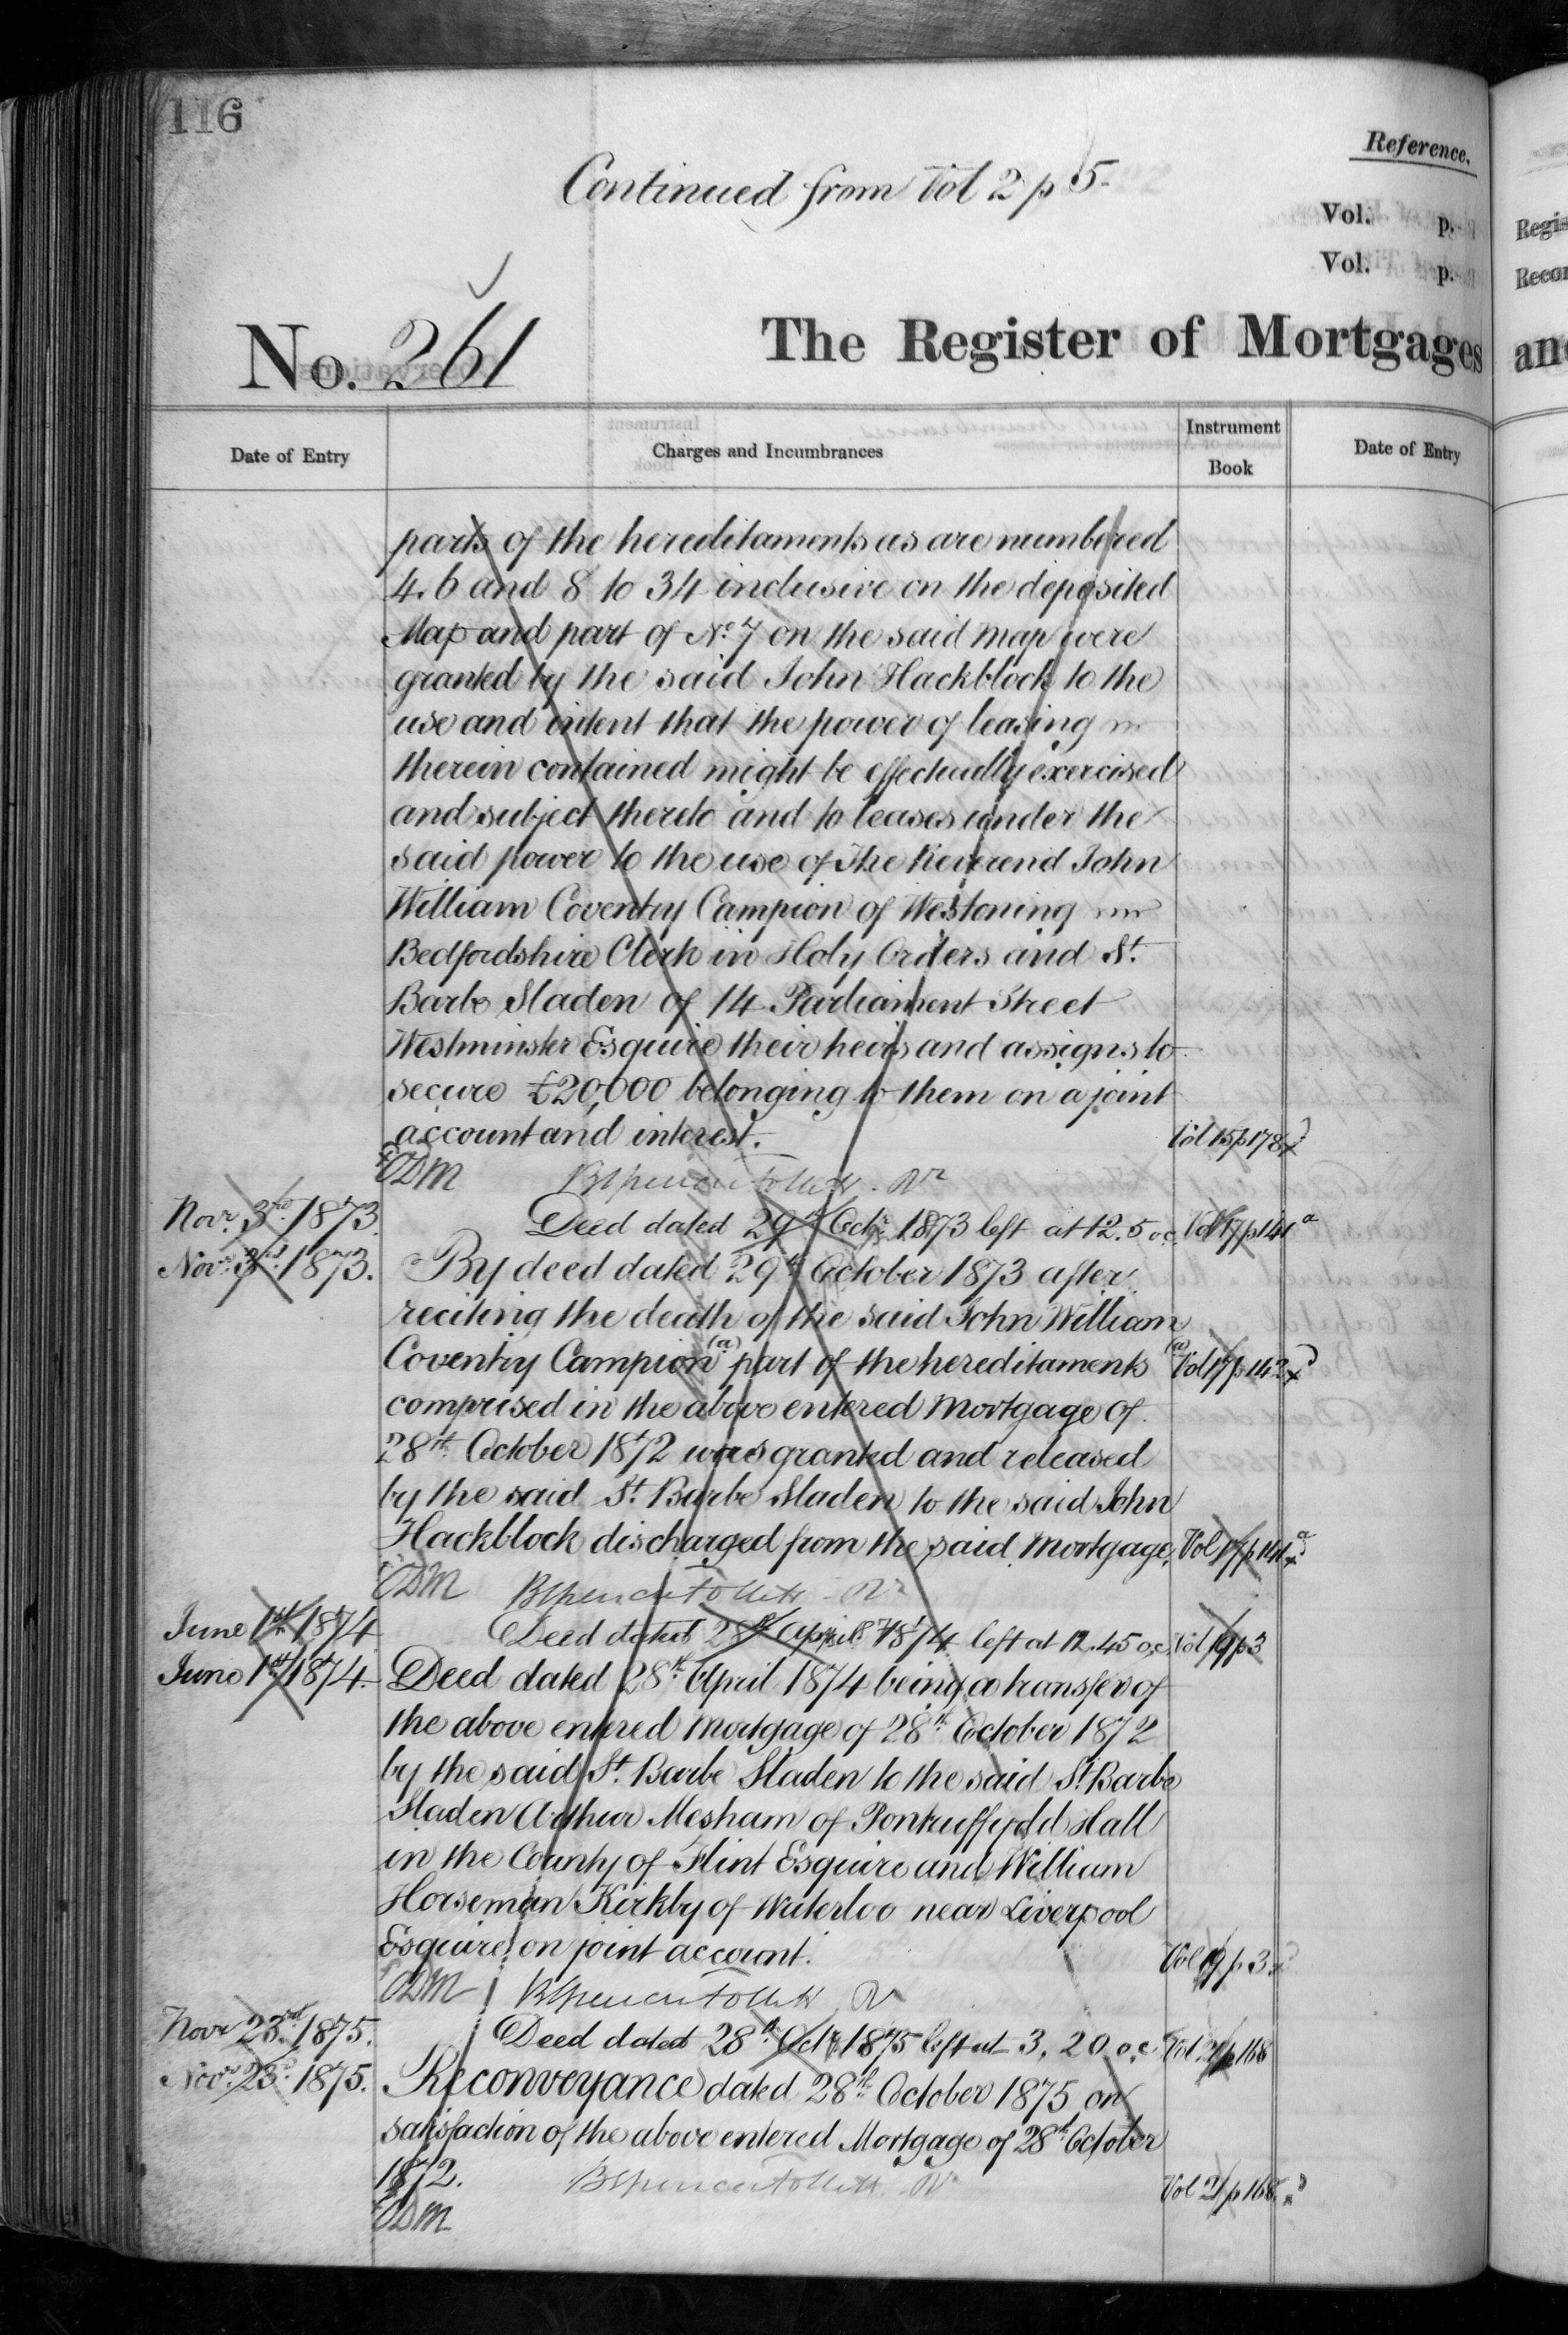 116
Continued from Vol 2 p 5
Reference.
Vol. p.
Vol. p.
No. 261
The Register of Mortgages
Date of Entry
Charges and Incumbrances
Instrument Book
Date of Entry
parts of the hereditaments as are numbered
4. 6 and 8 to 34 inclusive on the deposited
Map and part of No. 7 on the said map were
granted by the said John Hackblock to the
use and intent that the power of leasing
therein contained might be effectually exercised
and subject thereto and to leases under the
said power to the use of The Reverend John
William Coventry Campion of Westoning
Bedfordshire Clerk in Holy Orders and St.
Barbe Sladen of 14 Parliament Street
Westminster Esquire their heirs and assigns to
secure £20,000 belonging to them on a joint
account and interest. Vol 15 p 178
EDM
Novr. 3rd. 1873. Deed dated 29th Octr. 1873 left at 12.5 oc. Vol 17 p 141 a
Novr. 3rd. 1873. By deed dated 29th October 1873 after
reciting the death of the said John William
Coventry Campion (a) part of the hereditaments (a) Vol 17 p 142
comprised in the above entered Mortgage of
28th October 1872 was granted and released
by the said St. Barbe Sladen to the said John
Hackblock discharged from the said Mortgage. Vol 17 p 141 a
EDM
June 1st 1874 Deed dated 28th April 1874 left at 12.45 oc. Vol 19 p 3
June 1st 1874. Deed dated 28th April 1874 being a transfer of
the above entered Mortgage of 28th October 1872
by the said St. Barbe Sladen to the said St. Barbe
Sladen Arthur Mesham of Pontruffydd Hall
in the County of Flint Esquire and William
Horseman Kirkby of Waterloo near Liverpool
Esquire, on joint account. Vol 19 p 3
EDM
Novr 23rd. 1875. Deed dated 28th Octr. 1875 left at 3.20 oc. Vol 21 p 168
Novr. 23rd. 1875. Reconveyance dated 28th October 1875 on
satisfaction of the above entered Mortgage of 28th October
1872. Vol 21 p 168
EDM
an